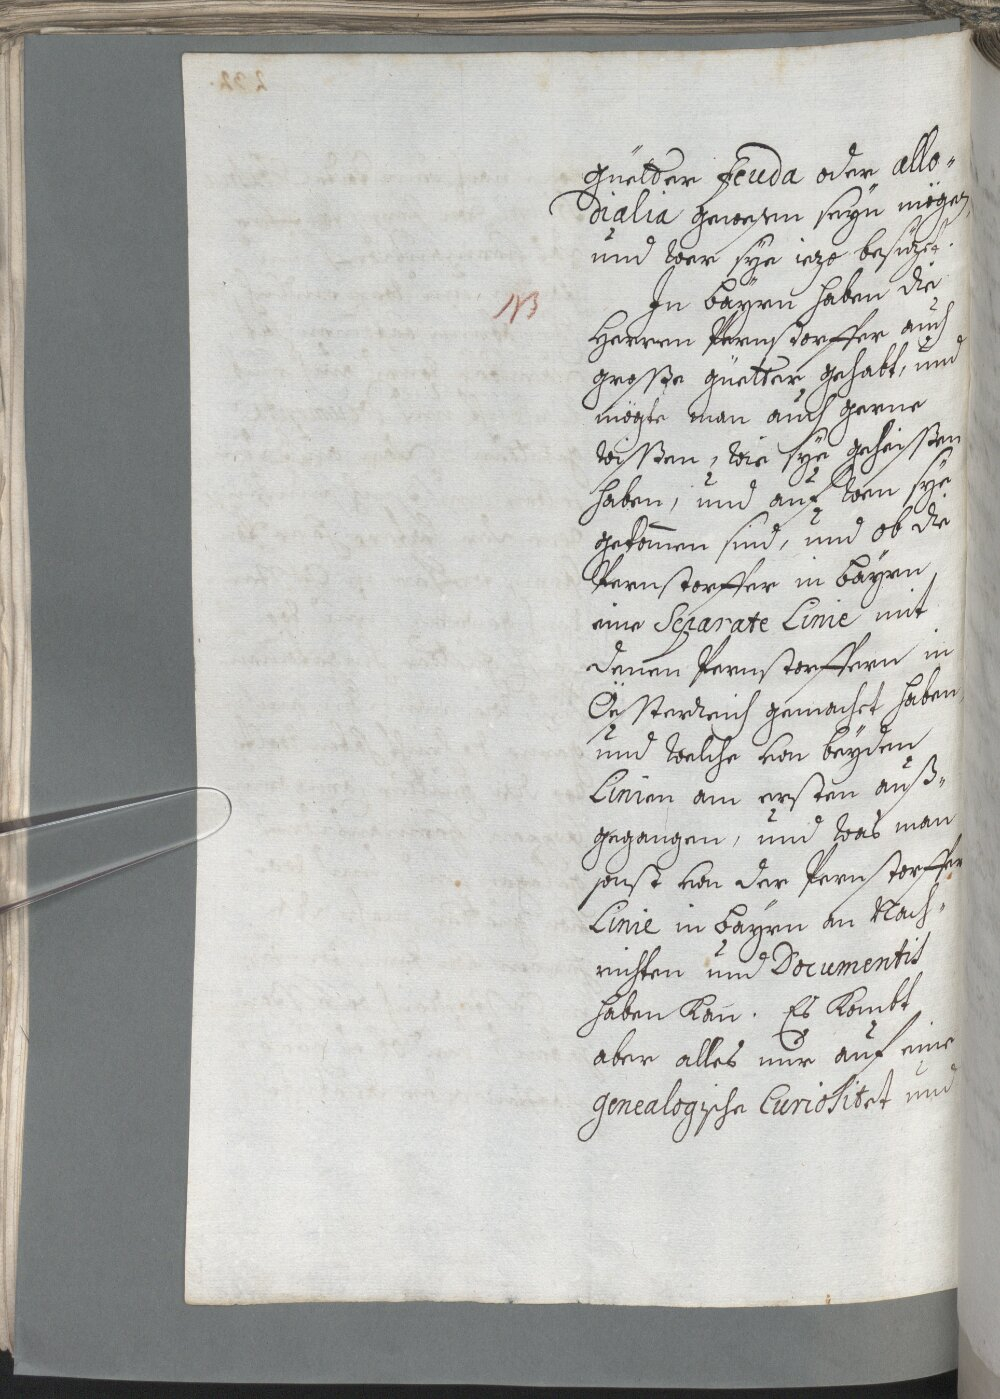 güetter Feuda oder allo-
dialia gewesen seyn mögen,
und wer sye iezo besüzet.
NB
In Bäyrn haben die
Herren Pernstorffer auch
grosße güetter gehabt, und
mögte man auch gerne
wisßen, wie sye geheisßen
haben, und auf wen sye
gekom̄en sind, und ob die
Pernstorffer in Bäyrn
eine Separate Linie mit
denen Pernstorffern in
Össterreich gemachet haben,
und welche von beyden
Linien am ersten auß-
gegangen, und was man
sonst von der Pernstorffer
Linie in Bäyrn an Nach-
richten und Documentis
haben kan̄. Es kombt
aber alles nur auf eine
genealogische Curiositet und